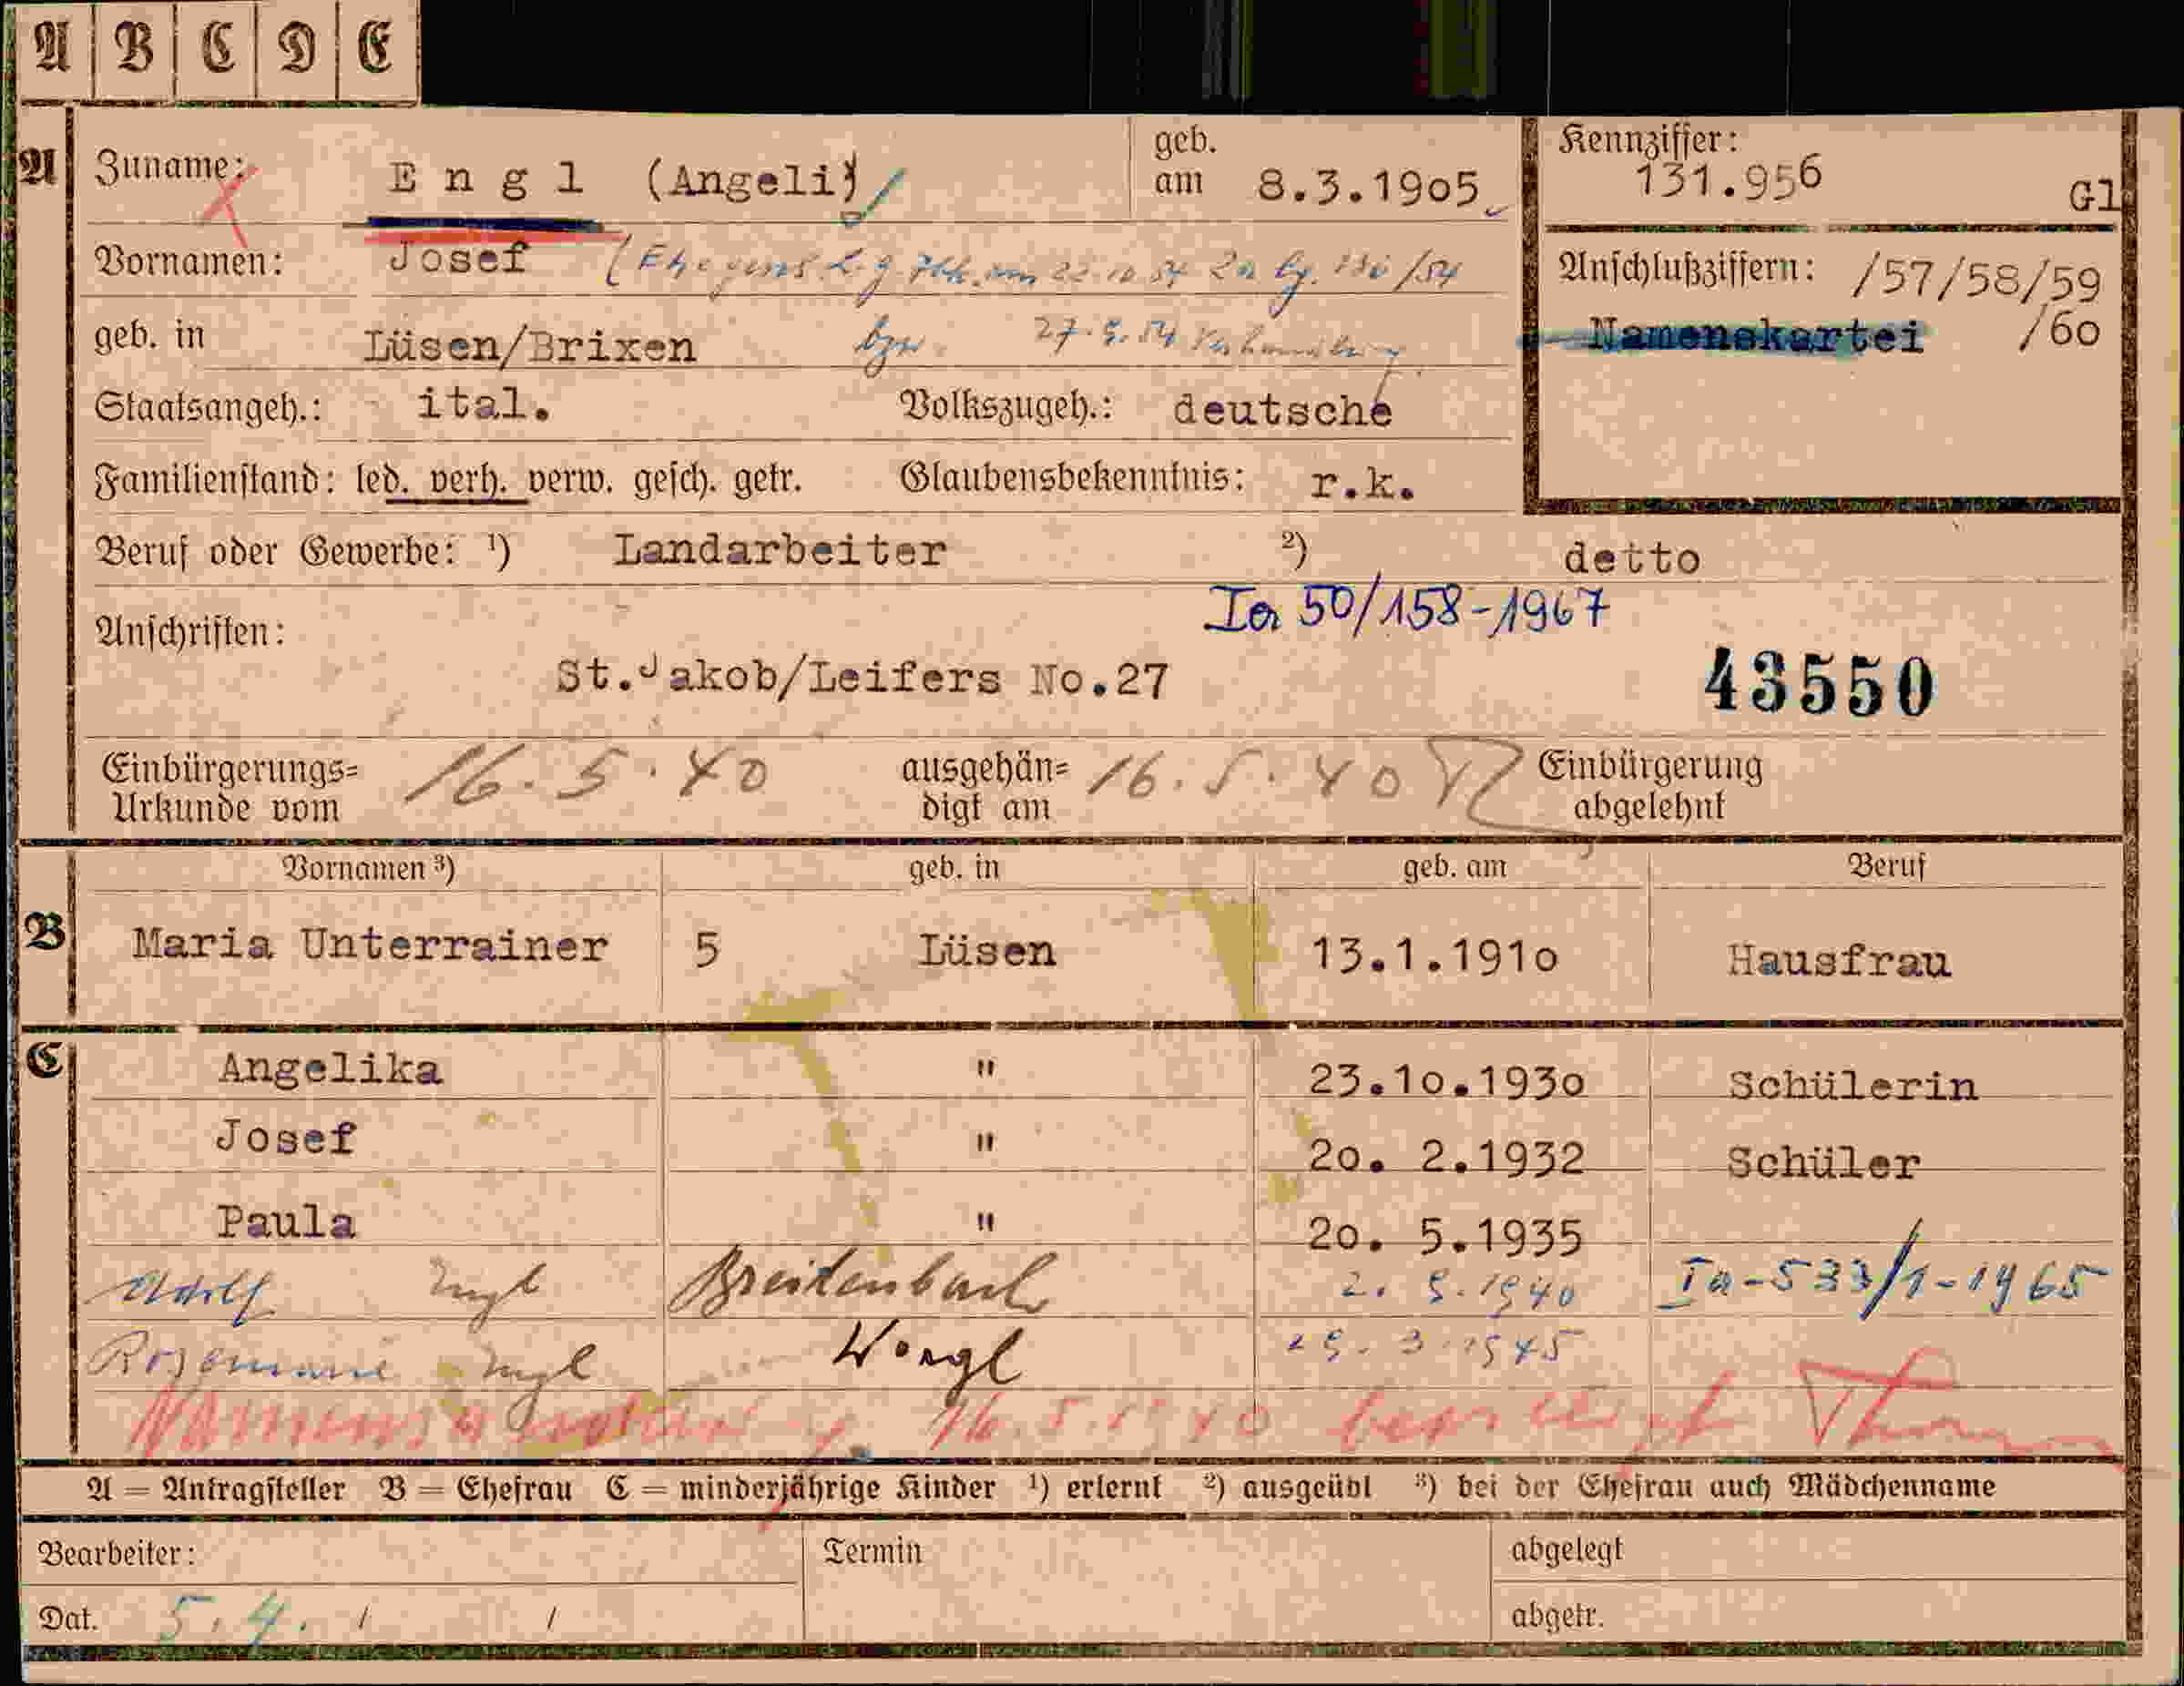 A B C D E
A Zuname: E n g l (Angeli) geb. am 8.3.1905 Kennziffer: 131.956 Gl
Vornamen: Josef Anschlußziffern: /57/58/59
geb. in Lüsen/Brixen bzw. Namenskartei /60
Staatsangeh.: ital. Volkszugeh.: deutsche
Familienstand: led. verh. verw. gesch. getr. Glaubensbekenntnis: r.k.
Beruf oder Gewerbe: ¹) Landarbeiter ²) detto
Ia 50/158-1967
Anschriften:
St.Jakob/Leifers No.27 43550
Einbürgerungs= Urkunde vom 16.5.40 ausgehän= digt am 16.5.40 Einbürgerung abgelehnt
Vornamen ³) geb. in geb. am Beruf
B Maria Unterrainer 5 Lüsen 13.1.1910 Hausfrau
C Angelika " 23.10.1930 Schülerin
Josef " 20. 2.1932 Schüler
Paula " 20. 5.1935
Adolf Engl Breitenbach 1940 Ia-533/1-1965
Rosemarie Engl Wörgl 3.1945
16.5.1940
A = Antragsteller B = Ehefrau C = minderjährige Kinder ¹) erlernt ²) ausgeübt ³) bei der Ehefrau auch Mädchenname
Bearbeiter: Termin abgelegt
Dat. 5.4. / / abgetr.